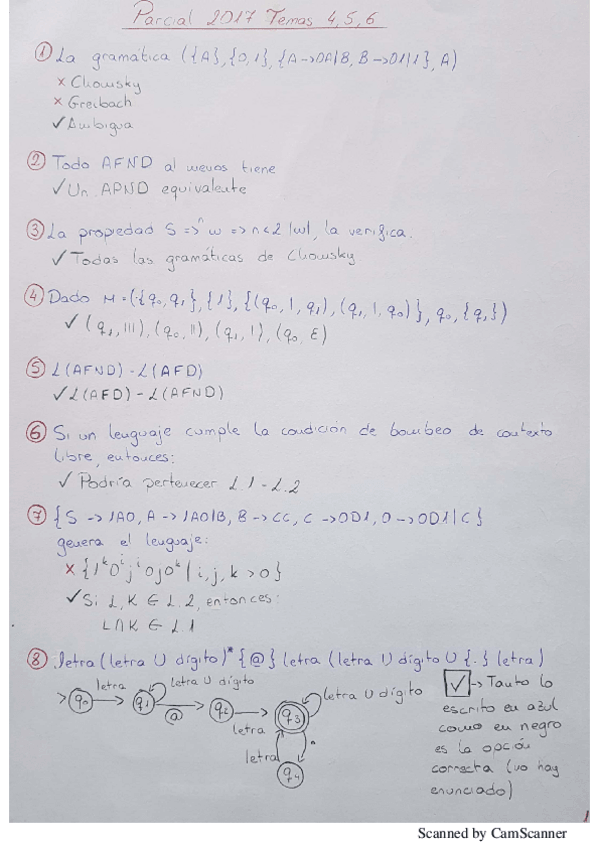 Parcial 2017 Temas 4,5,6
① La gramática ({A},{0,1},{A->0A|B, B->01|1}, A)
× Chowsky
× Greibach
✓ Ambigua
② Todo AFND al menos tiene
✓ Un APND equivalente
③ La propiedad S =>ⁿ w => n<2|w|, la verifica.
✓ Todas las gramáticas de Chowsky
④ Dado M = ({q₀,q₁},{1},{(q₀,1,q₁),(q₁,1,q₀)}, q₀,{q₁})
✓ (q₁,111),(q₀,11),(q₁,1),(q₀,ε)
⑤ L(AFND) - L(AFD)
✓ L(AFD) - L(AFND)
⑥ Si un lenguaje cumple la condición de bombeo de contexto
libre, entonces:
✓ Podría pertenecer L.1 - L.2
⑦ {S -> 1A0, A -> 1A0|B, B -> CC, C -> 0D1, D -> 0D1|C}
genera el lenguaje:
× {1ᵏ0ⁱ1ⁱ0ʲ0ᵏ | i,j,k > 0}
✓ Si L,K ∈ L.2, entonces:
L∩K ∈ L.1
⑧ letra (letra U dígito)* {@} letra (letra U dígito U {.} letra)
letra
letra U dígito
> q₀
q₁
@
q₂
letra
q₃
letra U dígito
letra
.
q₄
✓ -> Tanto lo
escrito en azul
como en negro
es la opción
correcta (no hay
enunciado)
1
Scanned by CamScanner